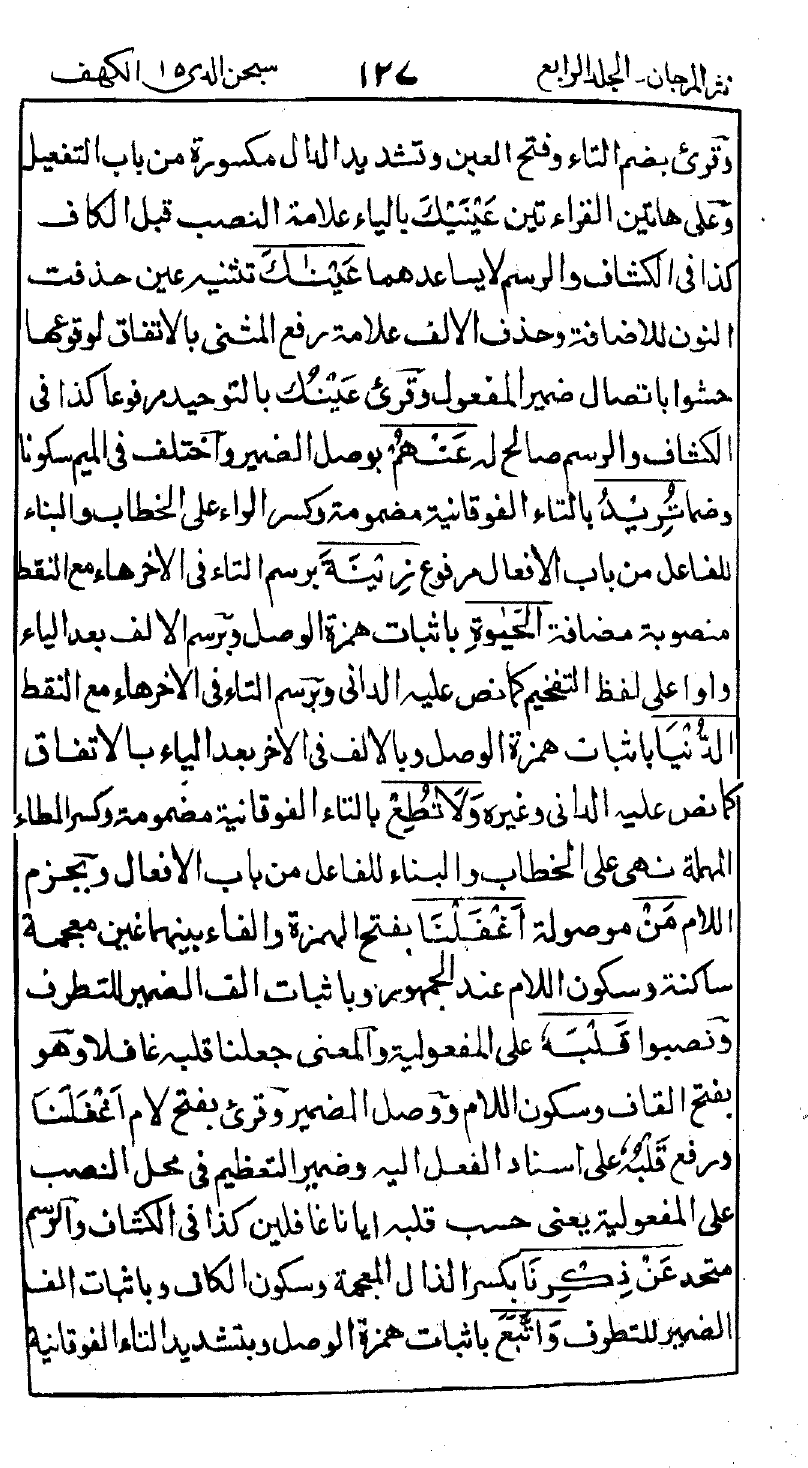 نثر المرجان - الجلد الرابع ١٢٧ سبحن الذى ١٥ الكهف
وقرئ بضم التاء وفتح العين وتشديد الدال مكسورة من باب التفعيل
وعلى هاتين القراءتين عَيْنَيْكَ بالياء علامة النصب قبل الكاف
كذا فى الكشاف والرسم لا يساعدهما عَيْنٰكَ تثنيه عين حذفت
النون للاضافة وحذف الالف علامة رفع المثنى بالاتفاق لوقوعها
حشوا باتصال ضمير المفعول وقرئ عَيْنُكَ بالتوحيد مرفوعا كذا فى
الكشاف والرسم صالح له عَنْهُمْ بوصل الضمير واختلف فى الميم سكونا
وضما تُرِيْدُ بالتاء الفوقانية مضمومة وكسر الراء على الخطاب والبناء
للفاعل من باب الافعال مرفوع زِيْنَةَ برسم التاء فى الاخر هاء مع النقط
منصوبة مضافة الْحَيٰوةِ باثبات همزة الوصل وبرسم الالف بعد الياء
واوا على لفظ التفخيم كما نص عليه الدانى وبرسم التاء فى الاخر هاء مع النقط
الدُّنْيَا باثبات همزة الوصل وبالالف فى الاخر بعد الياء بالاتفاق
كما نص عليه الدانى وغيره وَلَا تُطِعْ بالتاء الفوقانية مضمومة وكسر الطاء
المهملة نهى على الخطاب والبناء للفاعل من باب الافعال وبجزم
اللام مَنْ موصولة اَغْفَلْنَا بفتح الهمزة والفاء بينهما غين معجمة
ساكنة وسكون اللام عند الجمهور وباثبات الف الضمير للتطرف
ونصبوا قَلْبَهٗ على المفعولية والمعنى جعلنا قلبه غافلا وهو
بفتح القاف وسكون اللام ووصل الضمير وقرئ بفتح لام اَغْفَلَنَا
ورفع قَلْبُهٗ على اسناد الفعل اليه وضمير التعظيم فى محل النصب
على المفعولية يعنى حسب قلبه ايانا غافلين كذا فى الكشاف والرسم
متحد عَنْ ذِكْرِنَا بكسر الذال المعجمة وسكون الكاف وباثبات الف
الضمير للتطرف وَاتَّبَعَ باثبات همزة الوصل وبتشديد التاء الفوقانية